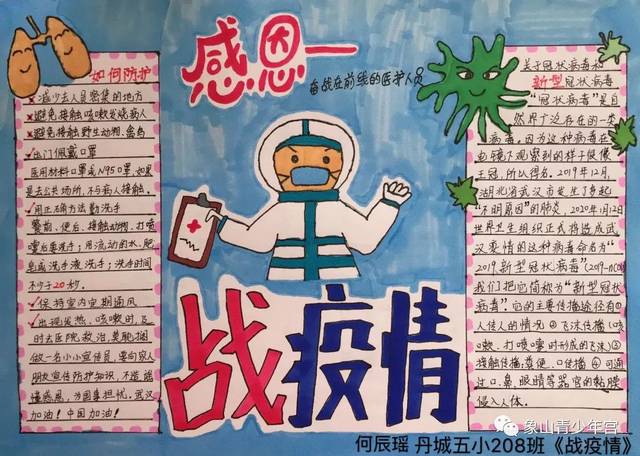 感恩
奋战在前线的医护人员
战疫情
如何防护
减少去人员密集的地方
避免接触咳嗽发烧病人
避免接触野生动物、禽鸟
出门佩戴口罩
医用材料口罩或N95口罩,如果
是去公共场所,不与病人接触。
用正确方法勤洗手
餐前、便后、接触动物、打喷
嚏后要洗手;用流动的水,肥
皂或洗手液洗手;洗手时间
不少于20秒。
保持室内定期通风
出现发热、咳嗽时,及
时去医院救治,莫耽搁
做一名小小宣传员,要向家人
朋友宣传防护知识,不造谣
懂感恩,为国事担忧,武汉
加油!中国加油!
关于冠状病毒和
新型冠状病毒
“冠状病毒”是自
然界广泛存在的一类
病毒,因为这种病毒在
电镜下观察到的样子很像
王冠,所以得名。2019年12月,
湖北省武汉市发生了多起
“不明原因”的肺炎,2020年1月12日
世界卫生组织正式将造成武
汉疫情的这种病毒命名为“
2019新型冠状病毒”(2019-nCoV)
我们把它简称为“新型冠状病
病毒”,它的主要传播途径有①
人传人的情况②飞沫传播(咳
嗽、打喷嚏时形成的飞沫)③
接触传播,粪便、口传播④可通
过口、鼻、眼睛等器官的黏膜
侵入人体。
象山青少年宫
何辰瑶 丹城五小208班《战疫情》